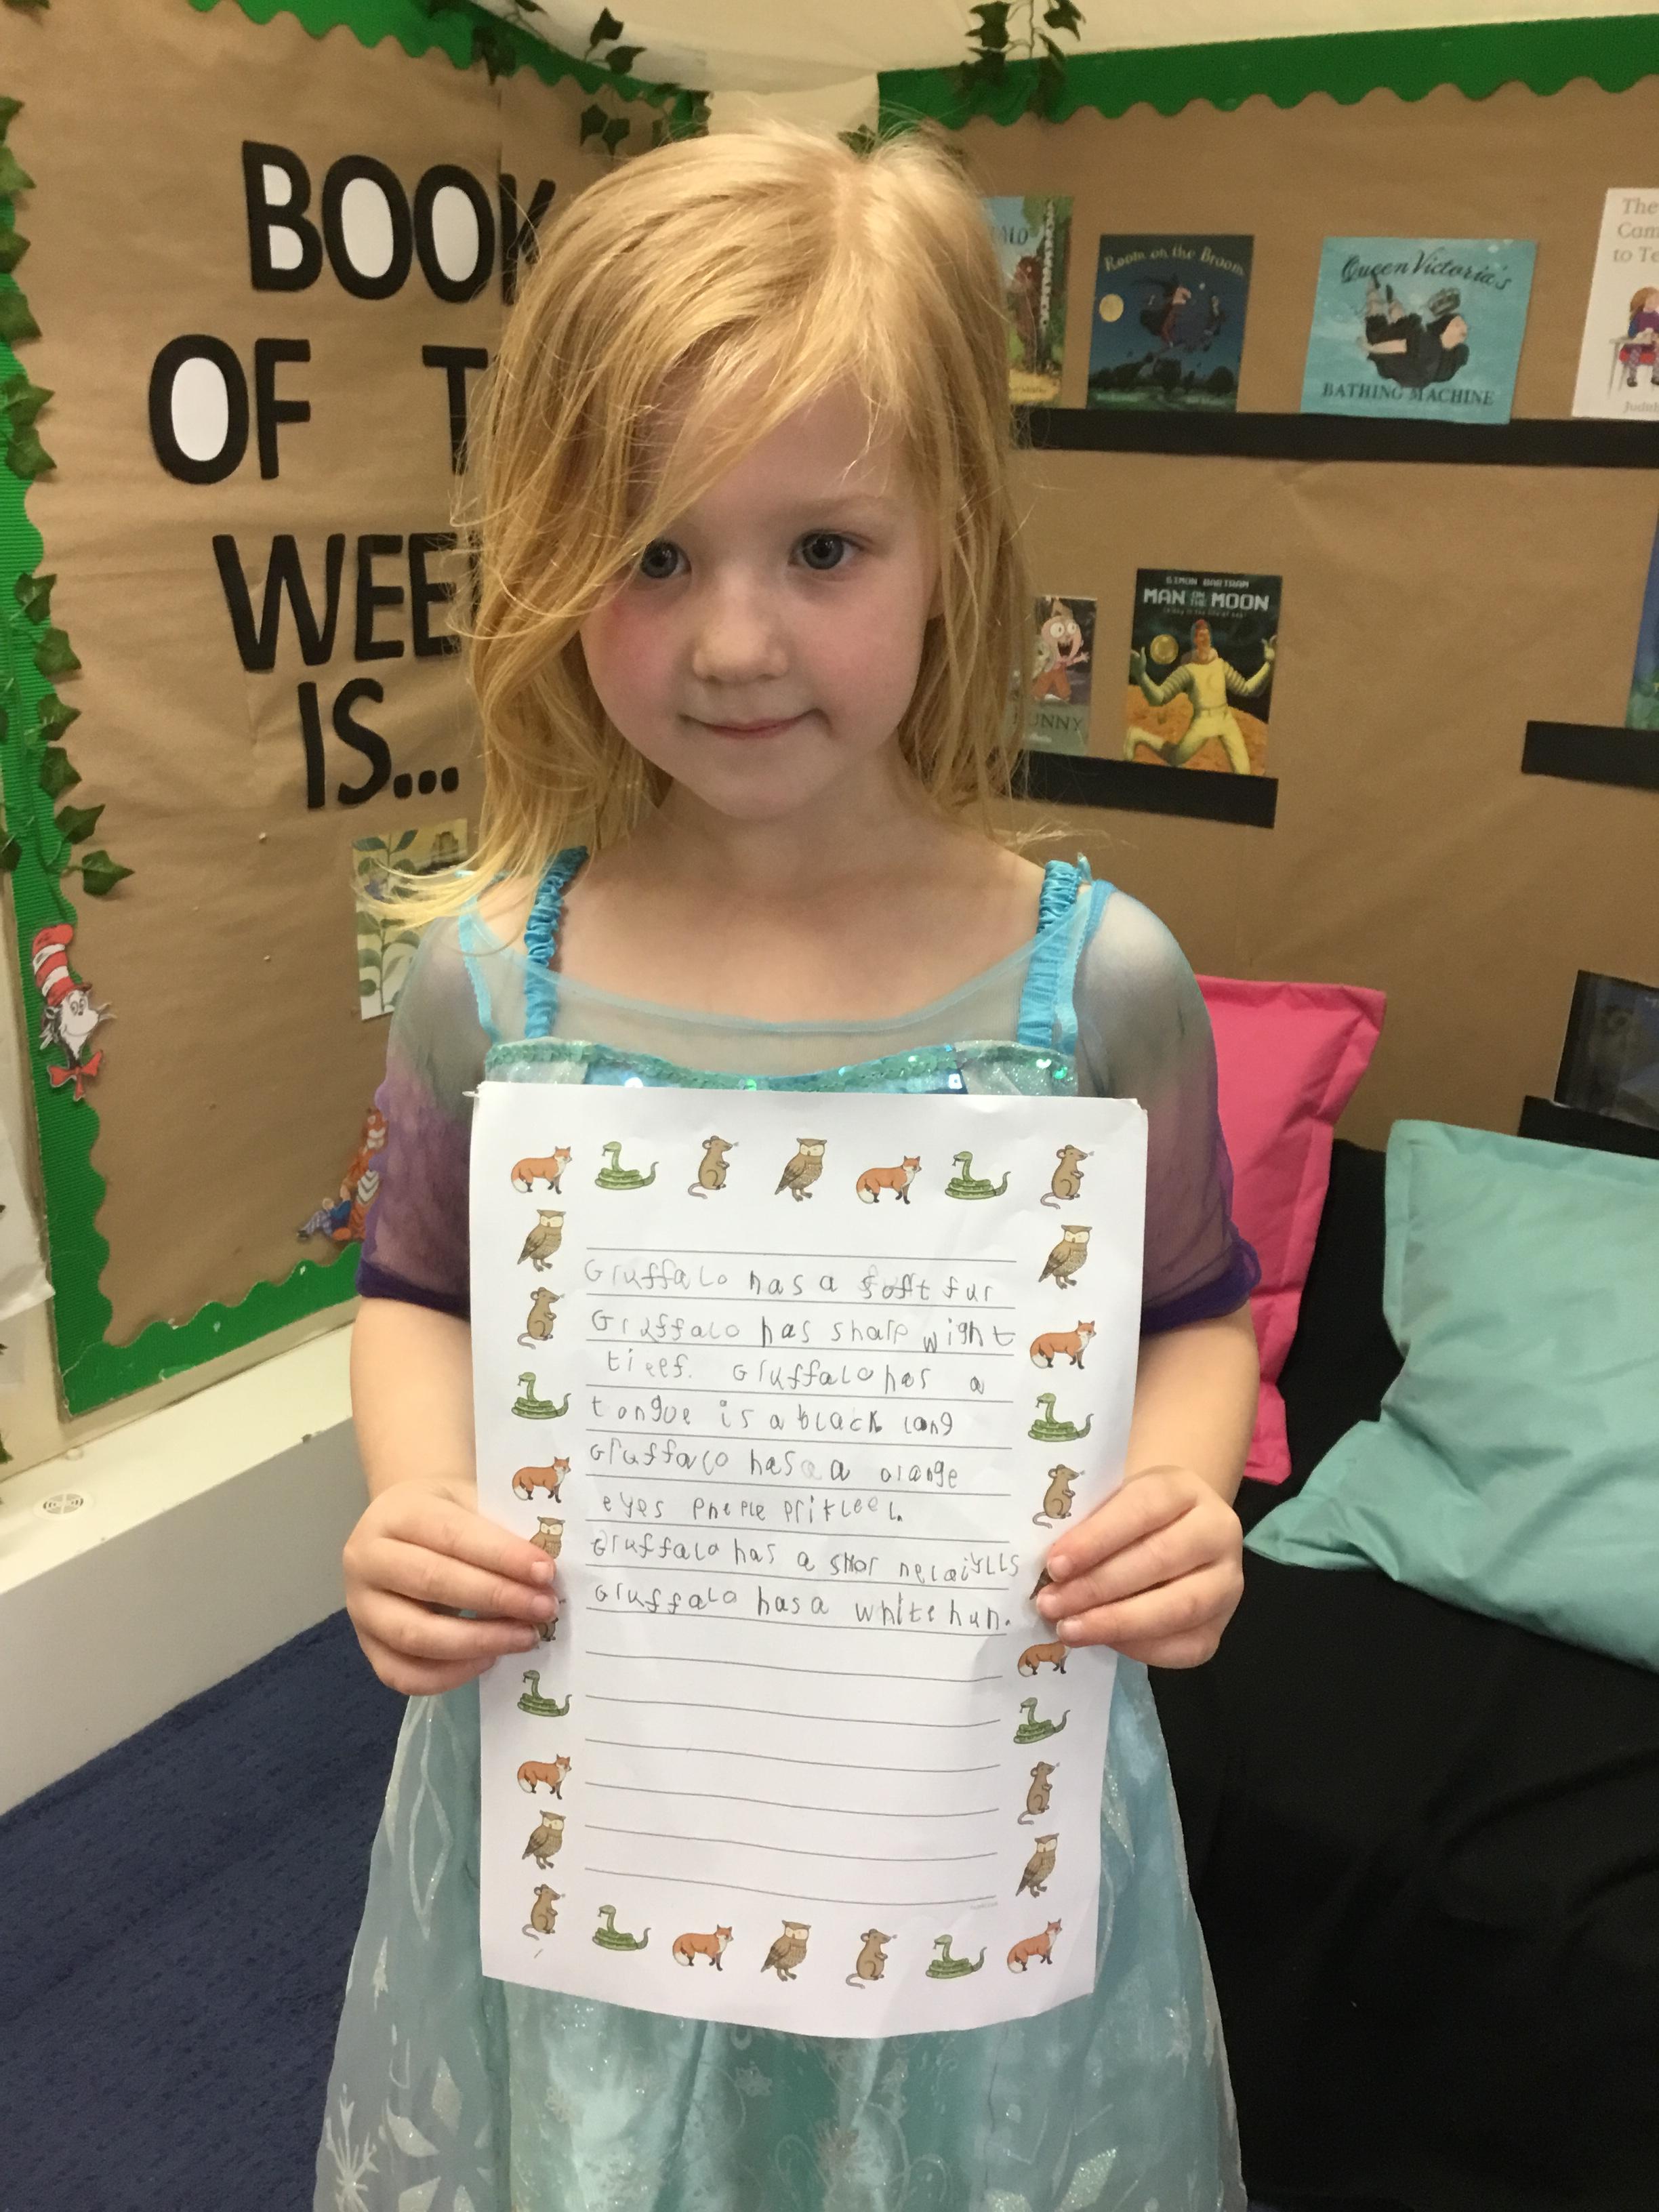 BOOK
OF T
WEE
IS...
Room on the Broom
Queen Victoria's
BATHING MACHINE
The
Cam
to Te
Judith
SIMON BARTRAM
MAN ON THE MOON
UNNY
Gruffalo has a soft fur
Gruffalo has sharp wight
tieef. Gruffalo has a
tongue is a black long
Gruffalo has a orange
eyes prickleel.
Gruffalo has a
Gruffalo has a white hun.